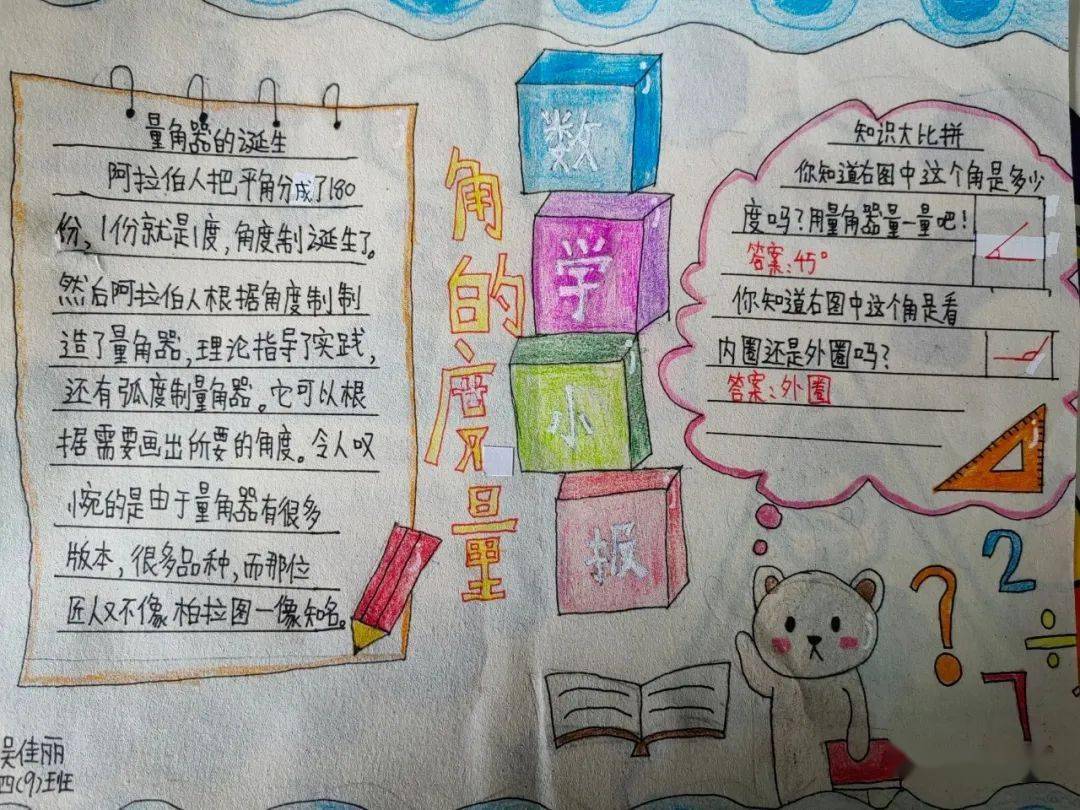 量角器的诞生
阿拉伯人把平角分成了180
份,1份就是1度,角度制诞生了。
然后阿拉伯人根据角度制制
造了量角器,理论指导了实践,
还有弧度制量角器。它可以根
据需要画出所要的角度。令人叹
惋的是由于量角器有很多
版本,很多品种,而那位
匠人又不像柏拉图一像知名。
角的度量
数
学
小
报
知识大比拼
你知道右图中这个角是多少
度吗?用量角器量一量吧!
答案:45°
你知道右图中这个角是看
内圈还是外圈吗?
答案:外圈
?
2
÷
7
吴佳丽
四(9)班